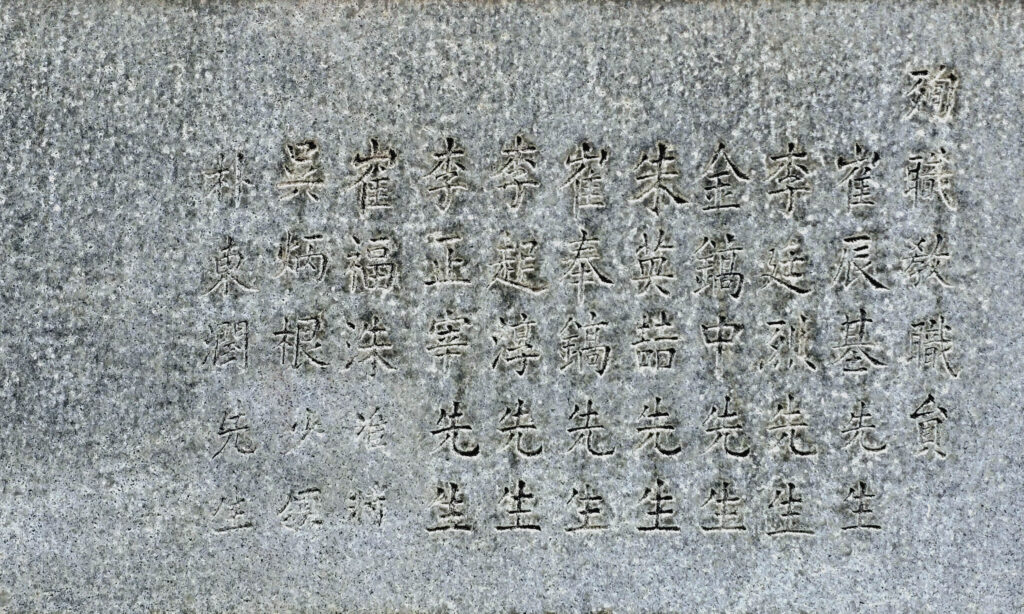 殉職敎職員
崔辰基先生
李廷烈先生
金鎬中先生
朱英喆先生
崔奉鎬先生
李起淳先生
李正宰先生
崔福洙
吳炳根
朴東潤先生